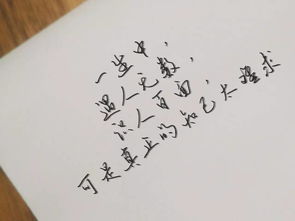 一生中,
遇人无数,
识人百面,
可是真正的知己太难求